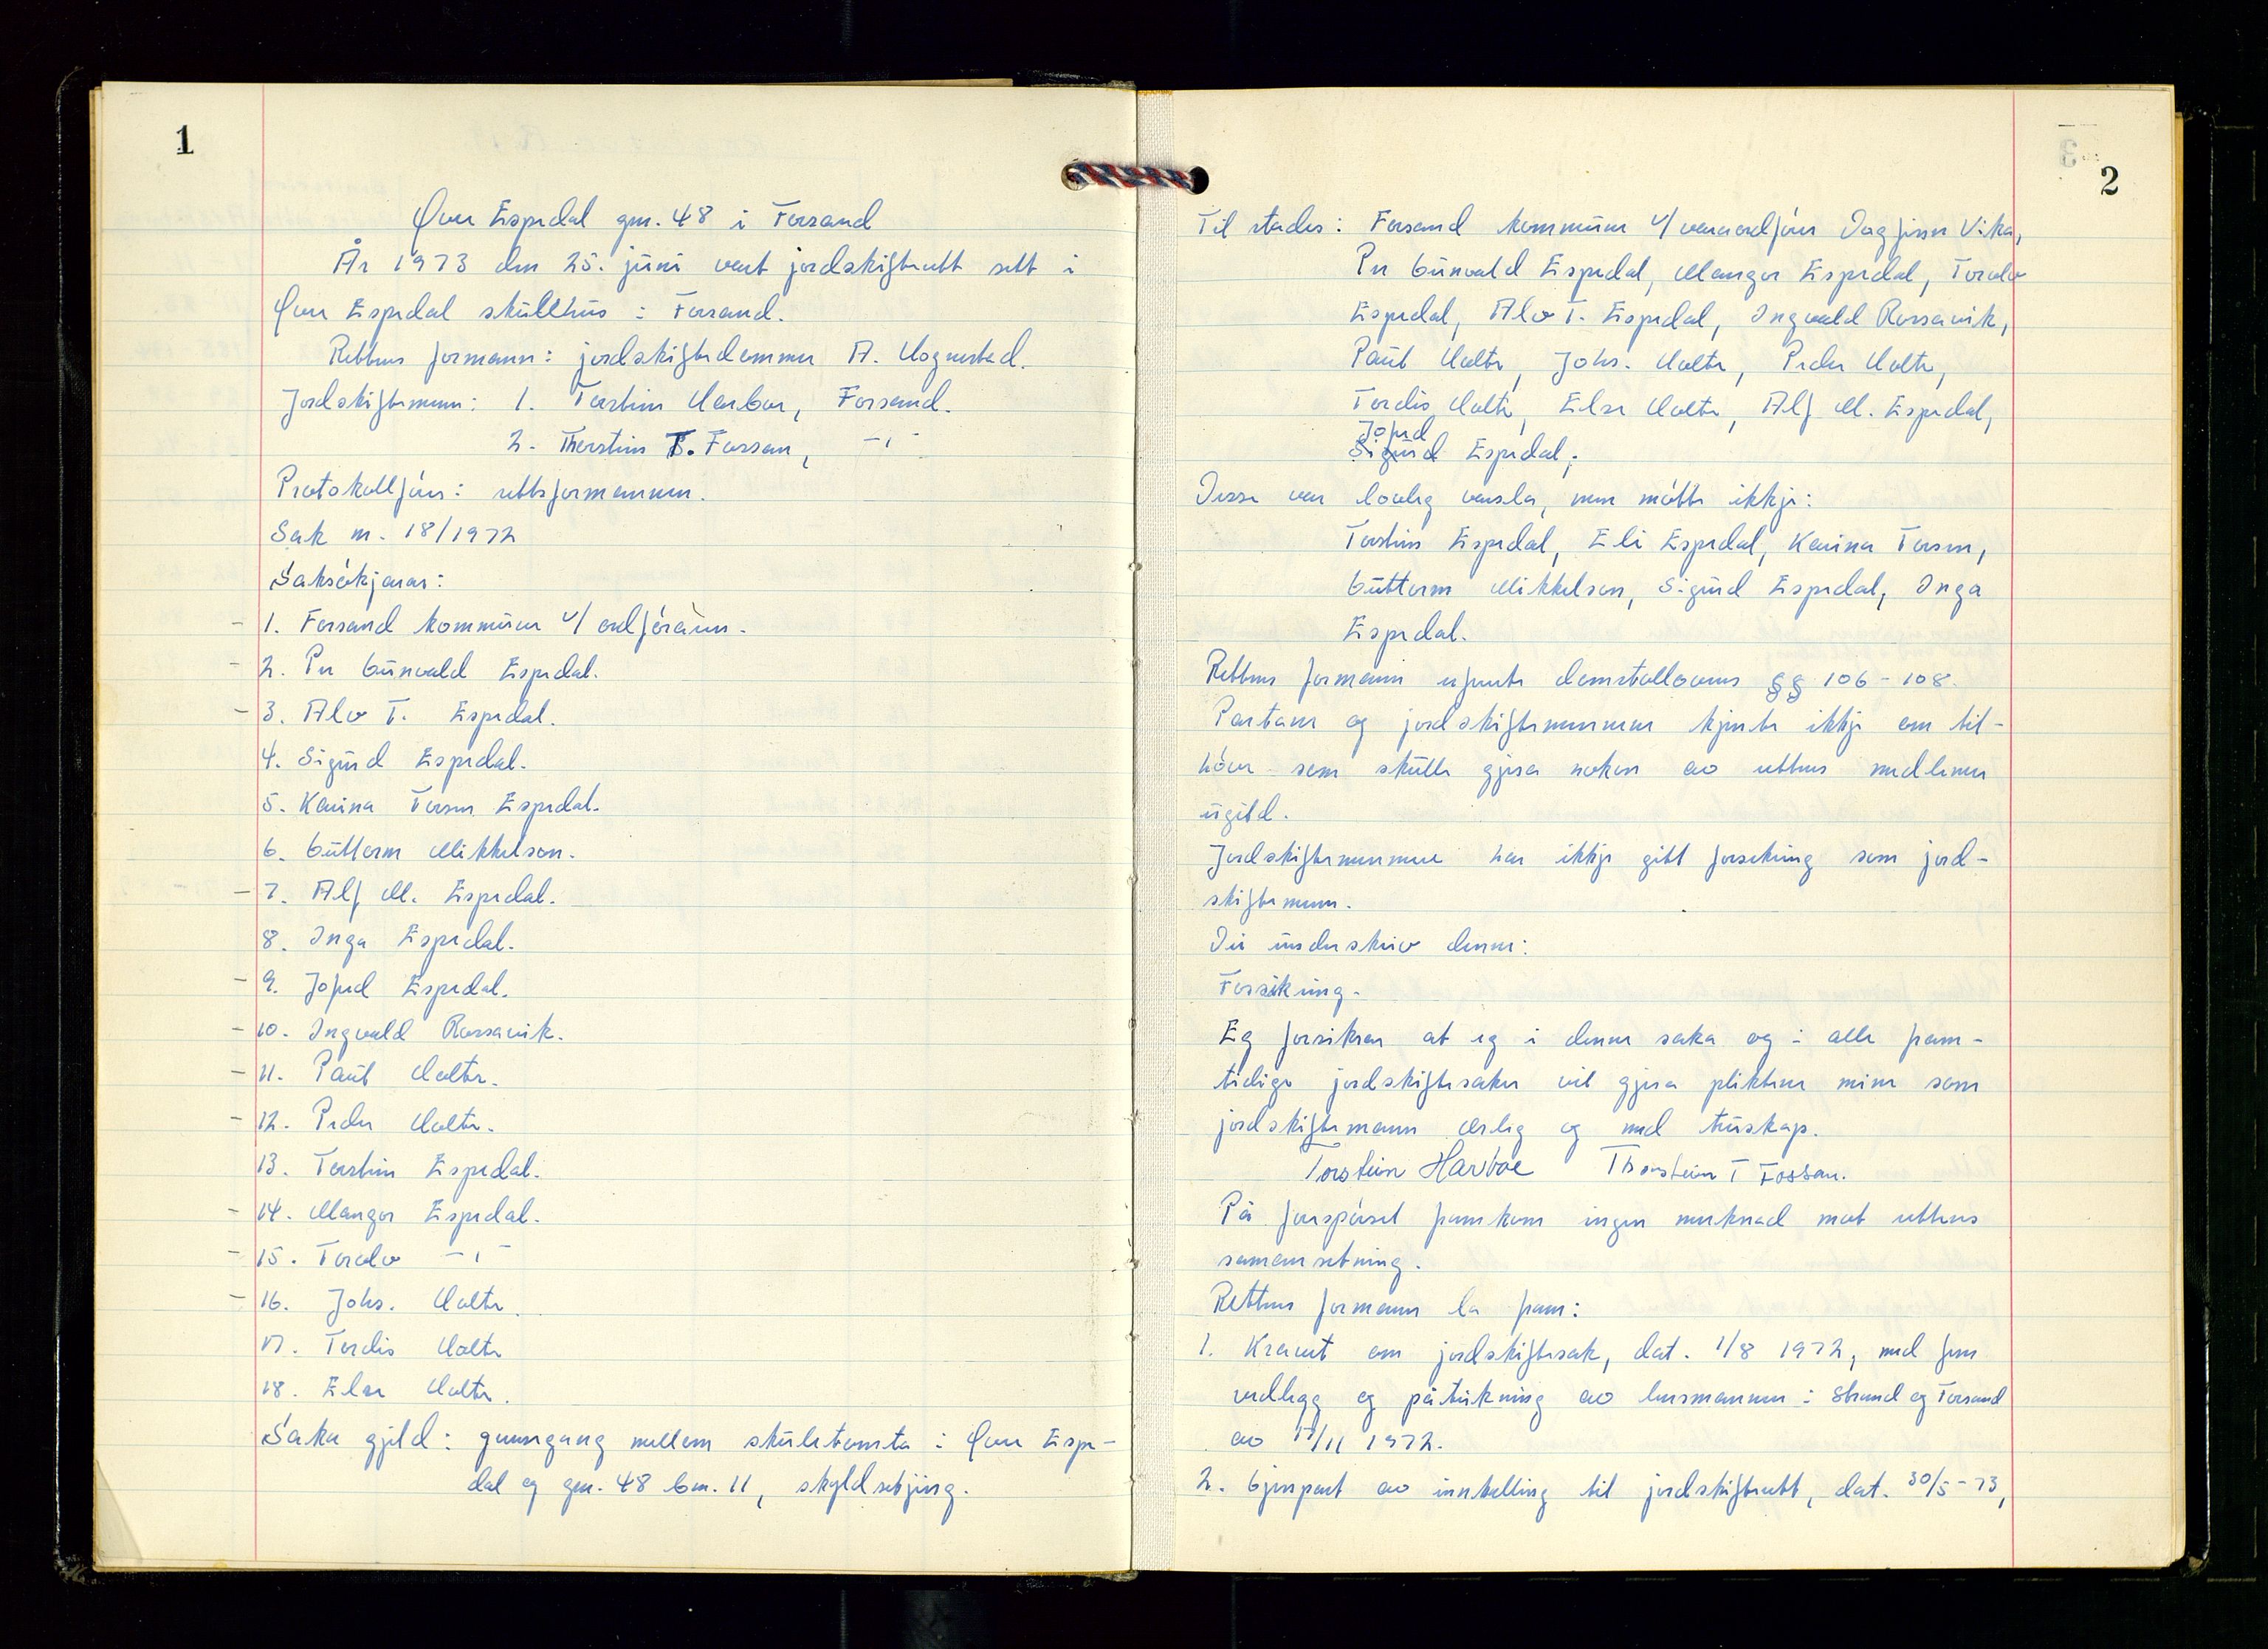 1
Øvre Espedal gnr. 48 i Forsand
År 1973 den 25. juni vart jordskifterett sett i
Øvre Espedal skulehus i Forsand.
Rettens formann: jordskiftedommer A. Hognestad.
Jordskiftemenn: 1. Torstein Harboe, Forsand.
2. Thorstein T. Fossan, —"—
Protokollførar: rettsformannen.
Sak nr. 18/1972
Saksøkjarar:
– 1. Forsand kommune v/ ordføraren.
– 2. Per Gunvald Espedal.
– 3. Alv T. Espedal.
4. Sigurd Espedal.
5. Karina Torsen Espedal.
6. Guttorm Mikkelson.
– 7. Alf M. Espedal.
8. Inga Espedal.
– 9. Jofred Espedal.
– 10. Ingvald Rossavik.
– 11. Paul Holte.
– 12. Peder Holte.
13. Torstein Espedal.
– 14. Mangor Espedal.
– 15. Torolv —"—
– 16. Johs. Holte.
17. Tordis Holte
18. Else Holte.
Saka gjeld: grensegang mellom skuletomta i Øvre Espe-
dal og gnr. 48 bnr. 11, skyldsetjing.
2
Til stades: Forsand kommune v/ varaordførar Dagfinn Vika,
Per Gunvald Espedal, Mangor Espedal, Torolv
Espedal, Alv T. Espedal, Ingvald Rossavik,
Paul Holte, Johs. Holte, Peder Holte,
Tordis Holte, Else Holte, Alf M. Espedal,
Jofred
Sigurd Espedal;
Desse var lovleg varsla, men møtte ikkje:
Torstein Espedal, Eli Espedal, Karina Torsen,
Guttorm Mikkelson, Sigurd Espedal, Inga
Espedal.
Rettens formann refererte domstollovens §§ 106-108.
Partane og jordskiftemennene kjente ikkje om til-
høve som skulle gjera nokon av rettens medlemer
ugild.
Jordskiftemennene har ikkje gitt forsikring som jord-
skiftemenn.
Dei underskreiv denne:
Forsikring.
Eg forsikrar at eg i denne saka og i alle fram-
tidige jordskiftesaker vil gjera pliktene mine som
jordskiftemann ærleg og med truskap.
Torstein Harboe Thorstein T Fossan.
På førespørsel framkom ingen merknad mot rettens
samansetning.
Rettens formann la fram:
1. Kravet om jordskiftesak, dat. 1/8 1972, med fem
vedlegg og påteikning av lensmannen i Strand og Forsand
av 17/11 1972.
2. Gjenpart av innkalling til jordskifterett, dat. 30/5-73,